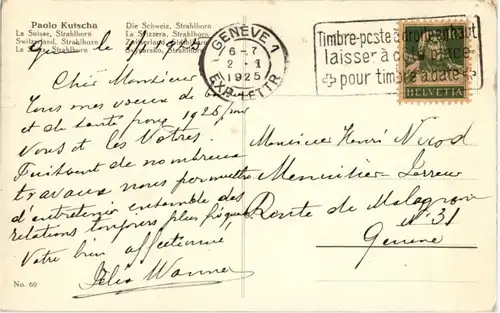 Paolo Kutscha
La Suisse, Strahlhorn
Switzerland, Strahlhorn
La Suisse, Strahlhorn
Die Schweiz, Strahlhorn
La Svizzera, Strahlhorn
Strahlhorn
Strahlhorn
GENÈVE 1
6-7
2-1
1925
EXP. LETTR.
Timbre-poste à droite en haut
laisser à côté place
pour timbre à date
HELVETIA
Cher Monsieur
Tous mes voeux de
et de santé pour 1925, pour
Vous et les Vôtres.
Puissent de nombreux
travaux nous permettre
d'entretenir ensemble des
relations toujours plus
Votre bien affectionné
Félix Wanner
Monsieur Henri Nicod
Menuisier-
Route de Malagnou
N° 31
Genève
No. 60